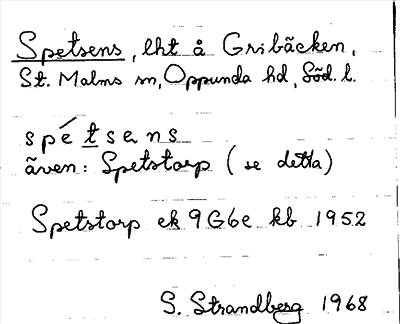 Spetsens, lht å Gribäcken,
St. Malms sn, Oppunda hd, Söd. l.
spétsens
även: Spetstorp (se detta)
Spetstorp ek 9G6e kb 1952
S. Strandberg 1968